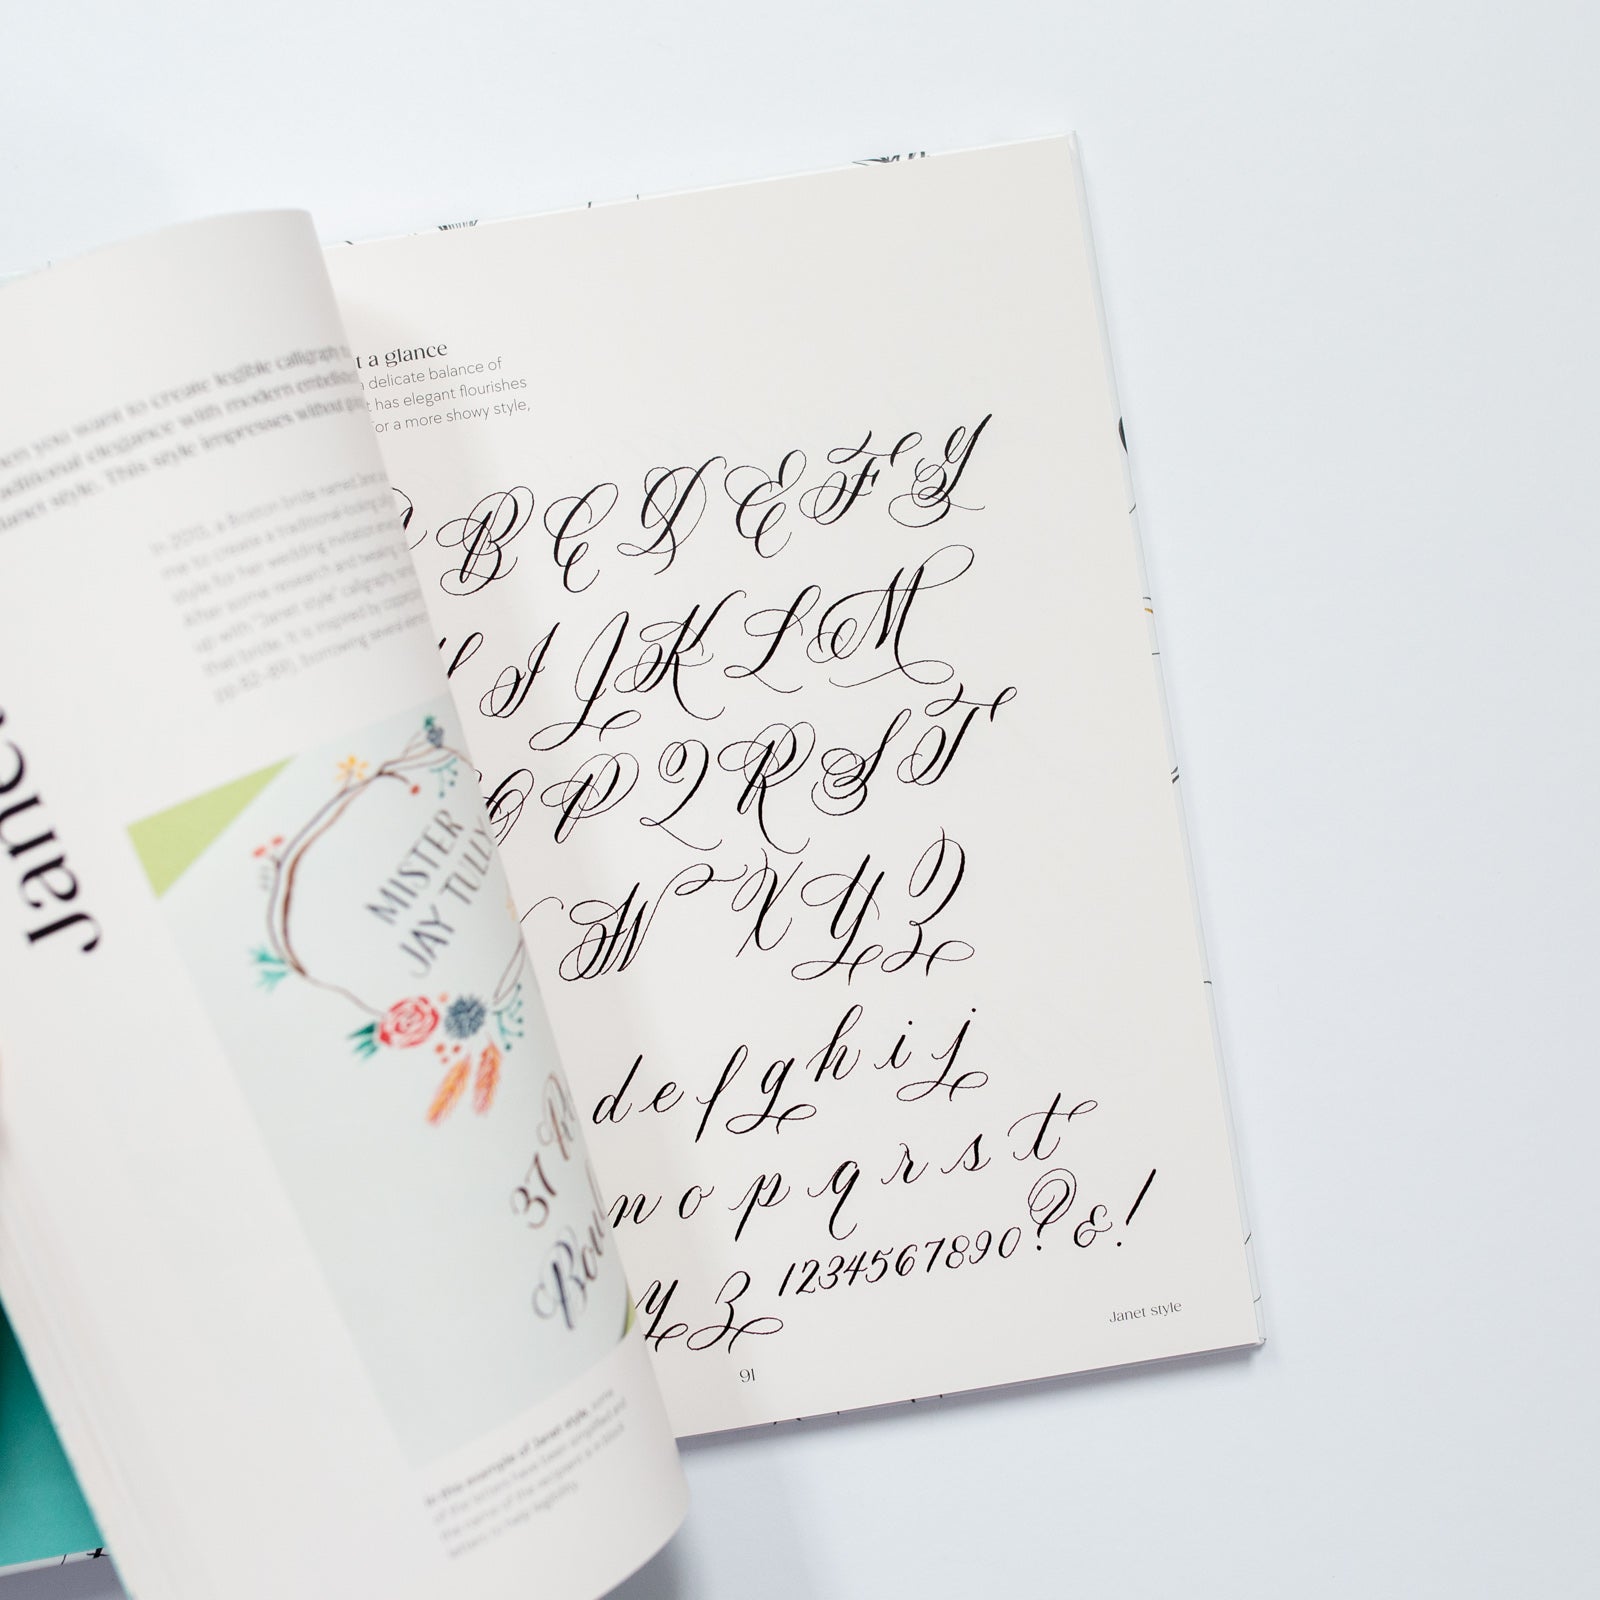 Jane
you want to create legible
elegance with modern
style. This style impresses without
In 2015, a Boston bride named
me to create a traditional-looking
style for her wedding
After some research and
up with "Janet style" calligraphy
that bride. It is inspired by
(pp.82–89), borrowing
MISTER
JAY TULLY
37
In this example of Janet style, some
of the letters have been simplified and
the name of the recipient is in block
letters to help legibility.
t a glance
a delicate balance of
t has elegant flourishes
For a more showy style,
B C D E F G
I J K L M
O P Q R S T
W X Y Z
d e f g h i j
n o p q r s t
y z 1234567890?&!
Janet style
91